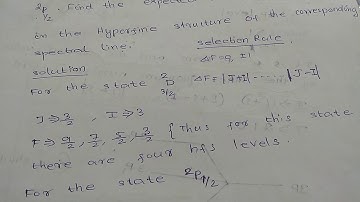 2P 1/2 . Find the expected
in the Hyperfine structure of the corresponding
spectral line.
selection Rule
solution
ΔF = 0, ±1
For the state ²D 3/2 ΔF = |J+I| ..... |J-I|
J ⇒ 3/2 , I ⇒ 3
F ⇒ 9/2, 7/2, 5/2, 3/2 { Thus for this state
there are four hfs levels.
For the state ²P 1/2